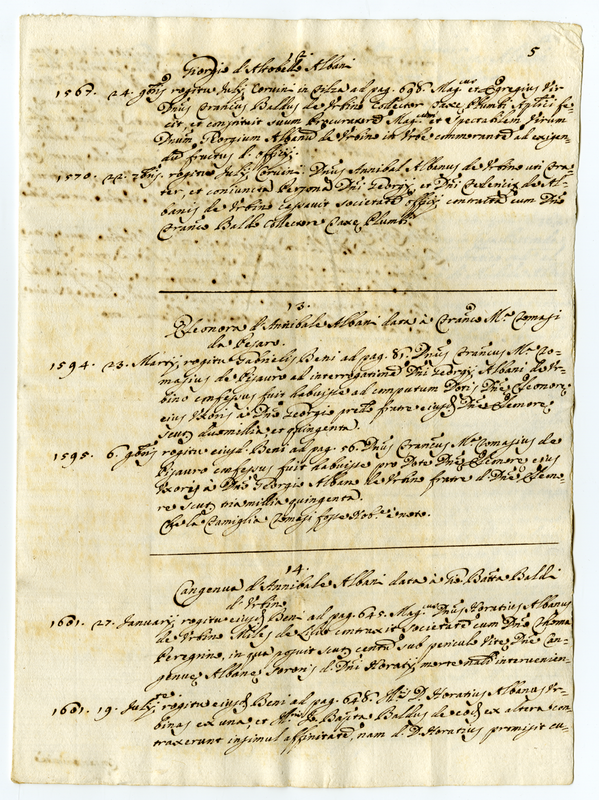 5
12.
Giorgio d'Altobello Albani
1567. 24. 9bris rogitu Julij Corvini in filza ad pag. 698. Magcus et Egregius Vir
Dnus Francus Baldus de Urbino Collector Taxe Plumbi Aplici fe-
cit, et constituit suum Procuratorem Magcum et Spectabilem Virum
Dnum Georgium Albanum de Urbino in Urbe commorantem ad exigen-
dum fructus d. officij.
1570. 22. rogitu Julij Corvini. Dnus Annibal Albanus de Urbino uti fra-
ter, et coniuncta Persona Dni Georgij, et Dni de Al-
banis de Urbino cassavit societatem officij contractam cum Dno
Franco Baldo Collectore Taxe Plumbi.
13.
Eleonora d'Annibale Albani data à Franco Ma Tomasi
da Pesaro.
1594. 23. Martij rogitu Gabrielis Beni ad pag. 81. Dnus Francus Ma To-
masius de Pisauro ad interrogationem Dni Georgij Albani de Ur-
bino confessus fuit habuisse ad computum Dotis Dne Eleonore
eius Uxoris à Dno Georgio preto fratre eiusd. Dne Eleonore
scuta duomillia et quingenta.
1595. 6. 9bris rogitu eiusd. Beni ad pag. 56. Dnus Francus Ma Tomasius de
Pisauro confessus fuit habuisse pro Dote Dne Eleonore eius
Uxoris à Dno Georgio Albano de Urbino fratre d. Dne Eleono-
re scuta tria millia quingenta.
Che la Famiglia Tomasi fosse Nobe è noto.
14.
Cangenua d'Annibale Albani data à Gio Batta Baldi
d'Urbino
1601. 27. Januarij rogitu eiusd. Beni ad pag. 645. Magcus Dnus Horatius Albanus
de Urbino Miles de Lilio contraxit societatem cum Dno Thoma
Peregrino, in qua posuit scuta centum sub periculo Vite Dne Can-
genue Albane Sororis d. Dni Horatij morte naturali intervenien-
te.
1601. 19. Julij rogitu eiusd. Beni ad pag. 648. D. Horatius Albanus Ur-
binas ex una, et D. Jo: Bapta Baldus de eadem ex altera con-
traxerunt insimul affinitatem, nam d. D. Horatius promisit cu-